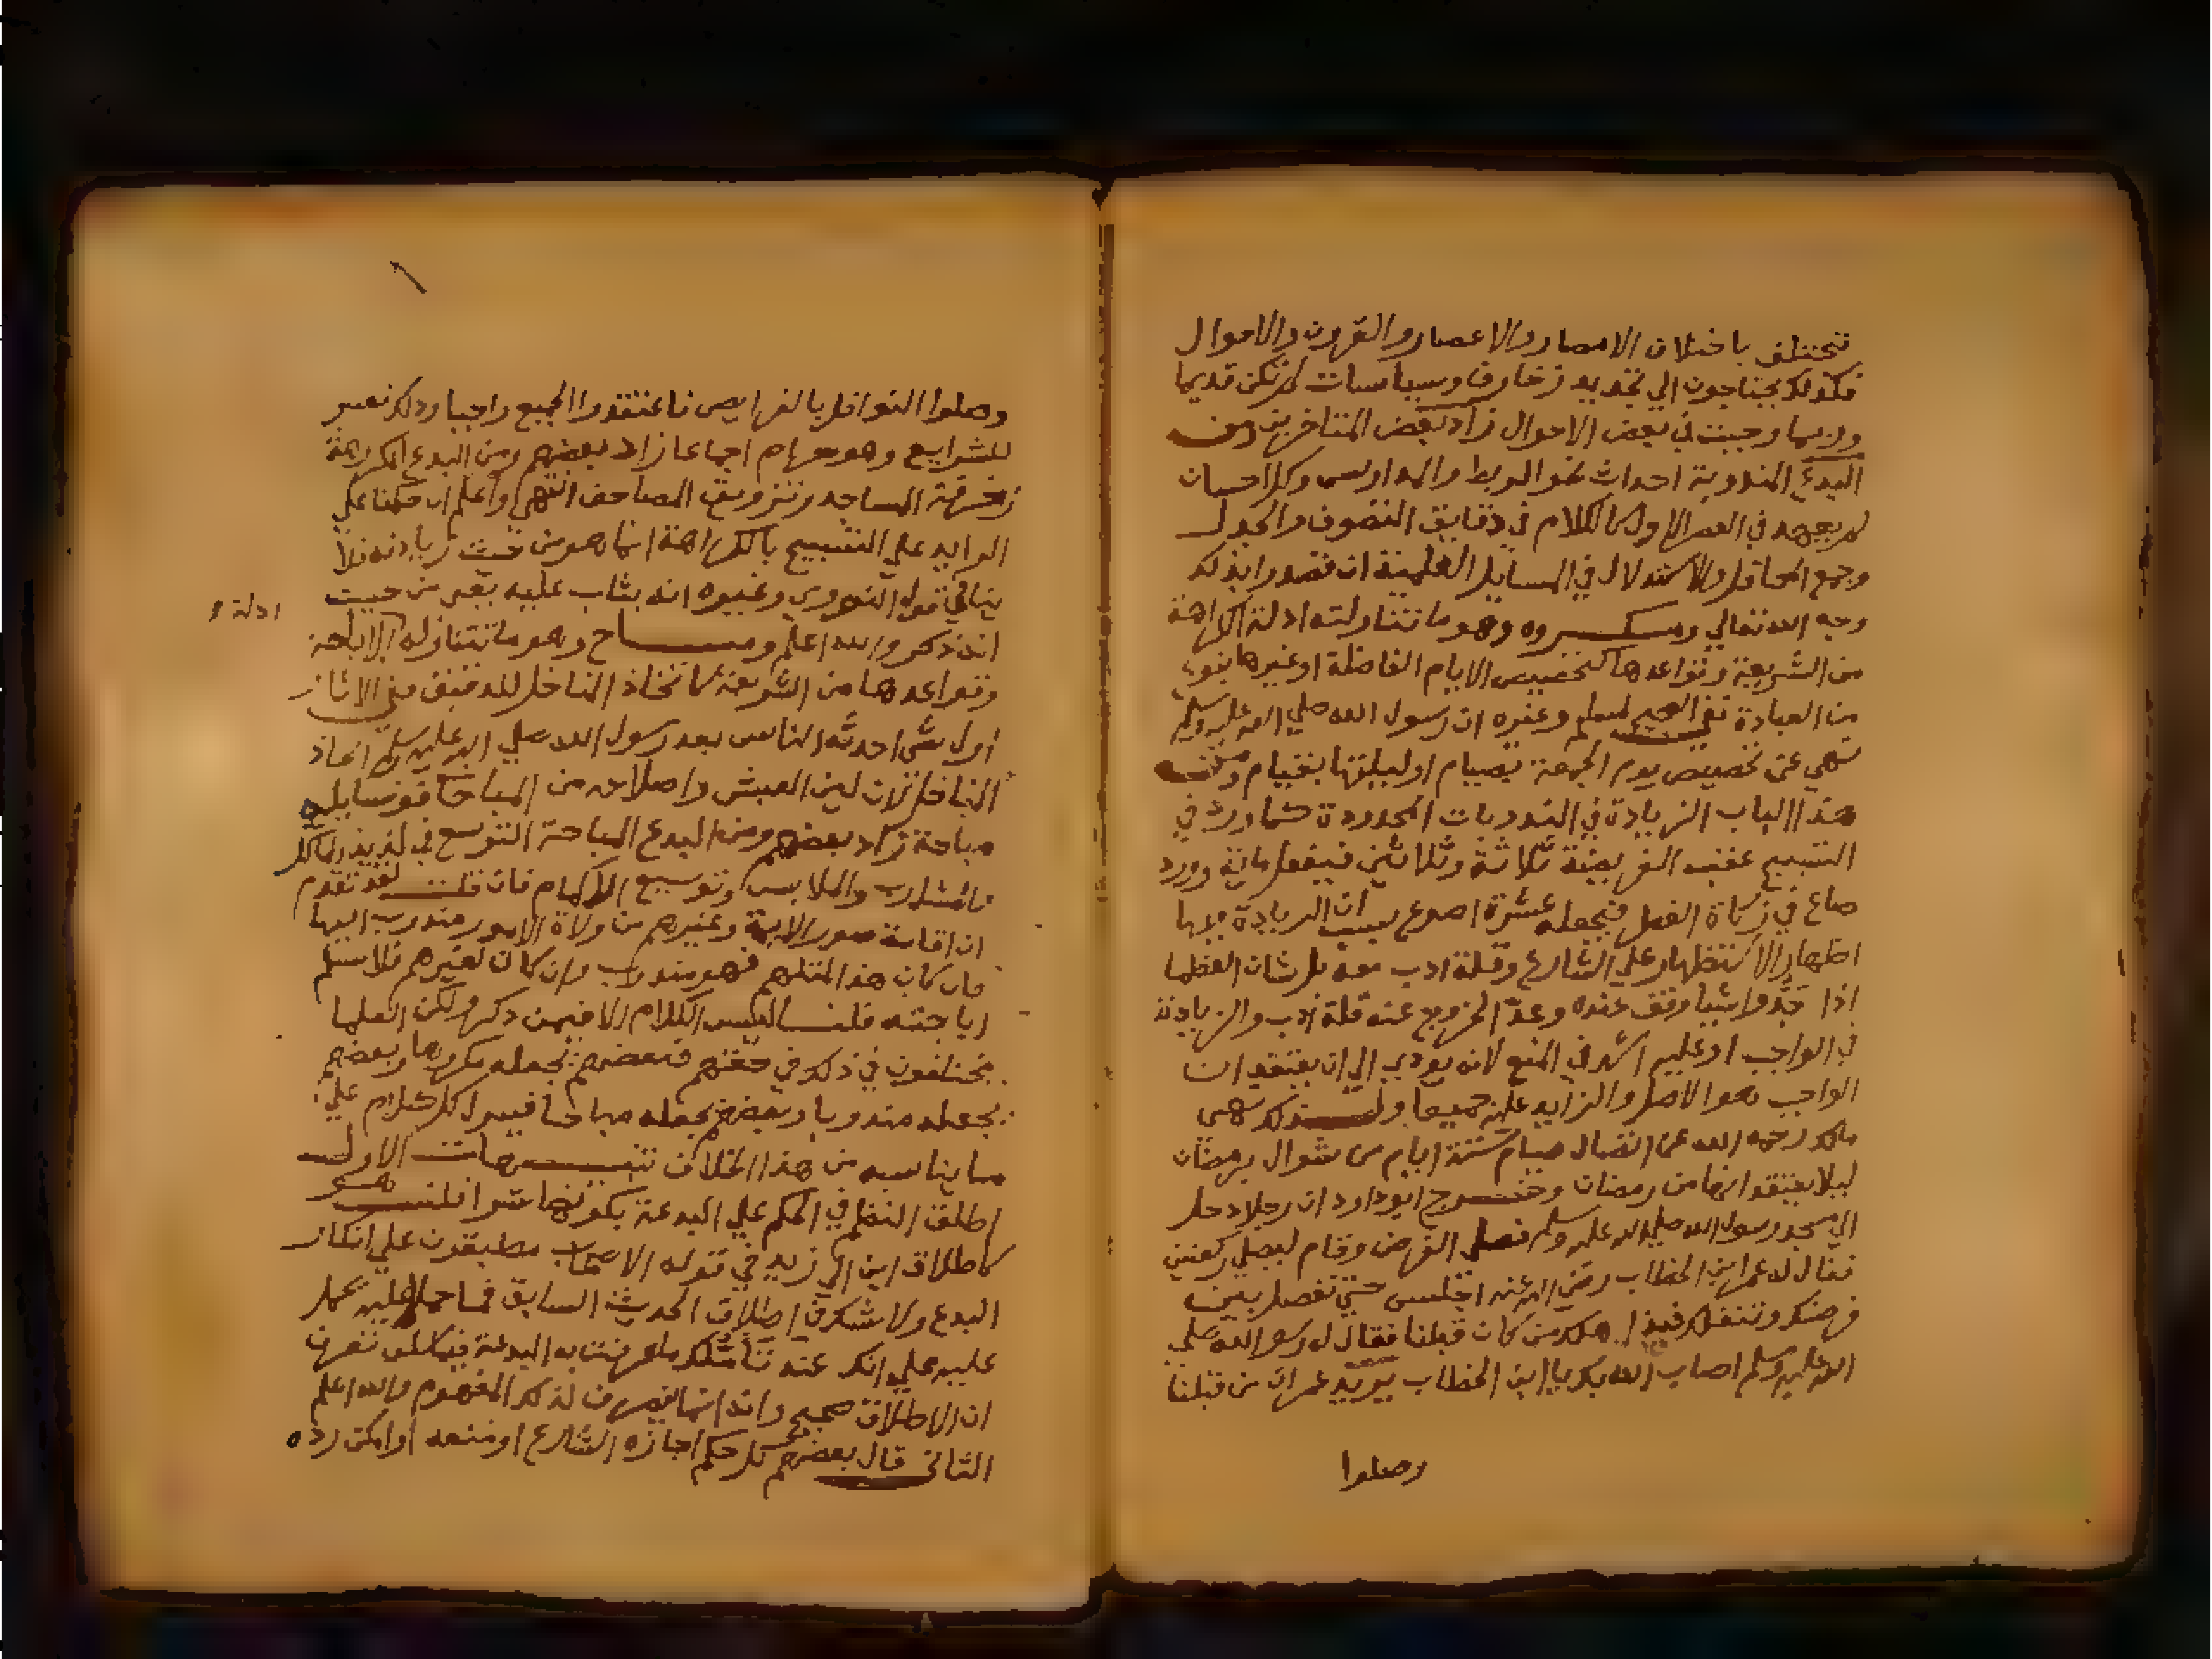 تختلف باختلاف الامصار والاعصار والقرون والاحوال
فكذلك يحتاجون الي تجديد زخارف وسياسات لم تكن قديما
وربما وجبت في بعض الاحوال زاد بعض المتاخرين ومن
البدع المندوبة احداث نحو الربط والمدارس وكل احسان
لم يعهد في العصر الاول كالكلام في دقايق التصوف والجدل
وجمع المحافل والاستدلال في المسايل العلمية ان قصدوا بذلك
وجه الله تعالي ومكروه وهو ما تناولته ادلة الكراهة
من الشريعة وقواعدها كتخصيص الايام الفاضلة او غيرها بنوع
من العبادة ففي الصحيح لمسلم وغيره ان رسول الله صلي الله عليه وسلم
نهي عن تخصيص يوم الجمعة بصيام او ليلتها بقيام ومن
هذا الباب الزيادة في المندوبات المحدودة كما ورد في
التسبيح عقب الفريضة ثلاثة وثلاثين فيفعل ماية وورد
صاع في زكاة الفطر فيجعله عشرة اصوع بسبب ان الزيادة فيها
اظهار الاستظهار علي الشارع وقلة ادب معه بل شان العظما
اذا حدوا شيا وقف عنده وعد الخروج عنه قلة ادب والزيادة
في الواجب او عليه اشد في المنع لانه يودي الي ان يعتقد ان
الواجب هو الاصل والزايد عليه جميعا ولذلك نهي
مالك رحمه الله عن اتصال صيام ستة ايام من شوال برمضان
ليلا يعتقد انها من رمضان وخرج ابو داود ان رجلا دخل
الي مسجد رسول الله صلي الله عليه وسلم فصلي الفرض وقام ليصلي ركعتين
فقال له عمر ابن الخطاب رضي الله عنه اجلس حتي تفصل بين
فرضك وتنفلك فبهذا هلك من كان قبلنا فقال له رسول الله صلي
الله عليه وسلم اصاب الله بك يا ابن الخطاب يريد عمر ان من قبلنا
وصلوا
وصلوا النوافل بالفرايض فاعتقدوا الجميع واجبا وذلك تغيير
للشرايع وهو حرام اجماعا زاد بعضهم ومن البدع المكروهة
زخرفة المساجد وتزويق المصاحف انتهي واعلم ان حكمنا علي
الزايد علي التسبيح بالكراهة انما هو من حيث زيادته فلا
ينافي قول النووي وغيره انه يثاب عليه يعني من حيث
انه ذكر والله اعلم ومباح وهو ما تتناوله الاباحة
ادلة
وقواعدها من الشريعة كاتخاذ المناخل للدقيق ففي الاثار
اول شي احدثه الناس بعد رسول الله صلي الله عليه وسلم اتخاذ
المناخل لان لين العيش واصلاحه من المباحات فوسايله
مباحة زاد بعضهم ومن البدع المباحة التوسع في لذيذ الماكل
والمشارب والملابس وتوسيع الاكمام فان قلت لقد تقدم
ان اقامة صور الايمة وغيرهم من ولاة الامور مندوب اليها
فان كان هذا لمثلهم فهو مندوب وان كان لغيرهم فلا نسلم
اباحته قلت ليس الكلام الا فيمن ذكر ولكن العلما
يختلفون في ذلك في حقهم فبعضهم يجعله مكروها وبعضهم
يجعله مندوبا وبعضهم يجعله مباحا فينزل كل كلام علي
ما يناسبه من هذا الخلاف تنبيهات الاول
اطلق النظم في الحكم علي البدعة بكونها شرا قلت هو
كاطلاق ابن ابي زيد في قوله الاصحاب مطبقون علي انكار
البدع ولا شك في اطلاق الحديث السابق فما حمل عليه يحمل
عليه علي انك عند تاملك ما عرفت به البدعة فيما سلف تعرف
ان الاطلاق صحيح وانه انما ينصرف لذلك المفهوم والله اعلم
الثاني قال بعضهم كل حكم اجازه الشارع او منعه او امكن رده